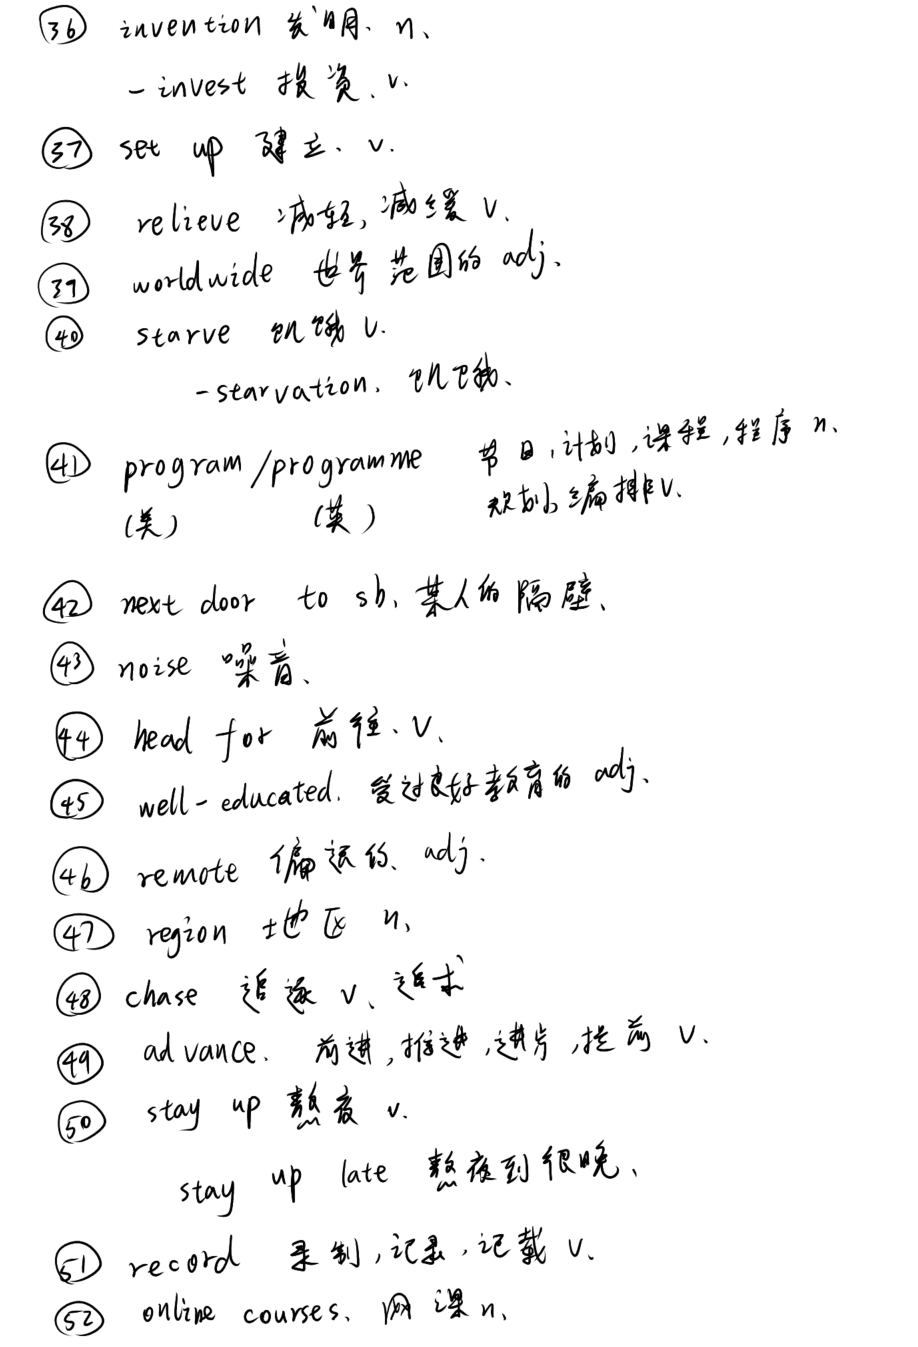 ㊱ invention 发明. n.
- invest 投资. v.
㊲ set up 建立. v.
㊳ relieve 减轻, 减缓 v.
㊴ worldwide 世界范围的 adj.
㊵ starve 饥饿 v.
- starvation. 饥饿.
㊶ program/programme 节目, 计划, 课程, 程序 n.
(美) (英) 规划, 编排 v.
㊷ next door to sb. 某人的隔壁.
㊸ noise 噪音.
㊹ head for 前往. v.
㊺ well-educated. 受过良好教育的 adj.
㊻ remote 偏远的. adj.
㊼ region 地区 n.
㊽ chase 追逐 v. 追求
㊾ advance. 前进, 推进, 进步, 提前 v.
㊿ stay up 熬夜 v.
stay up late 熬夜到很晚.
51 record 录制, 记录, 记载 v.
52 online courses. 网课 n.